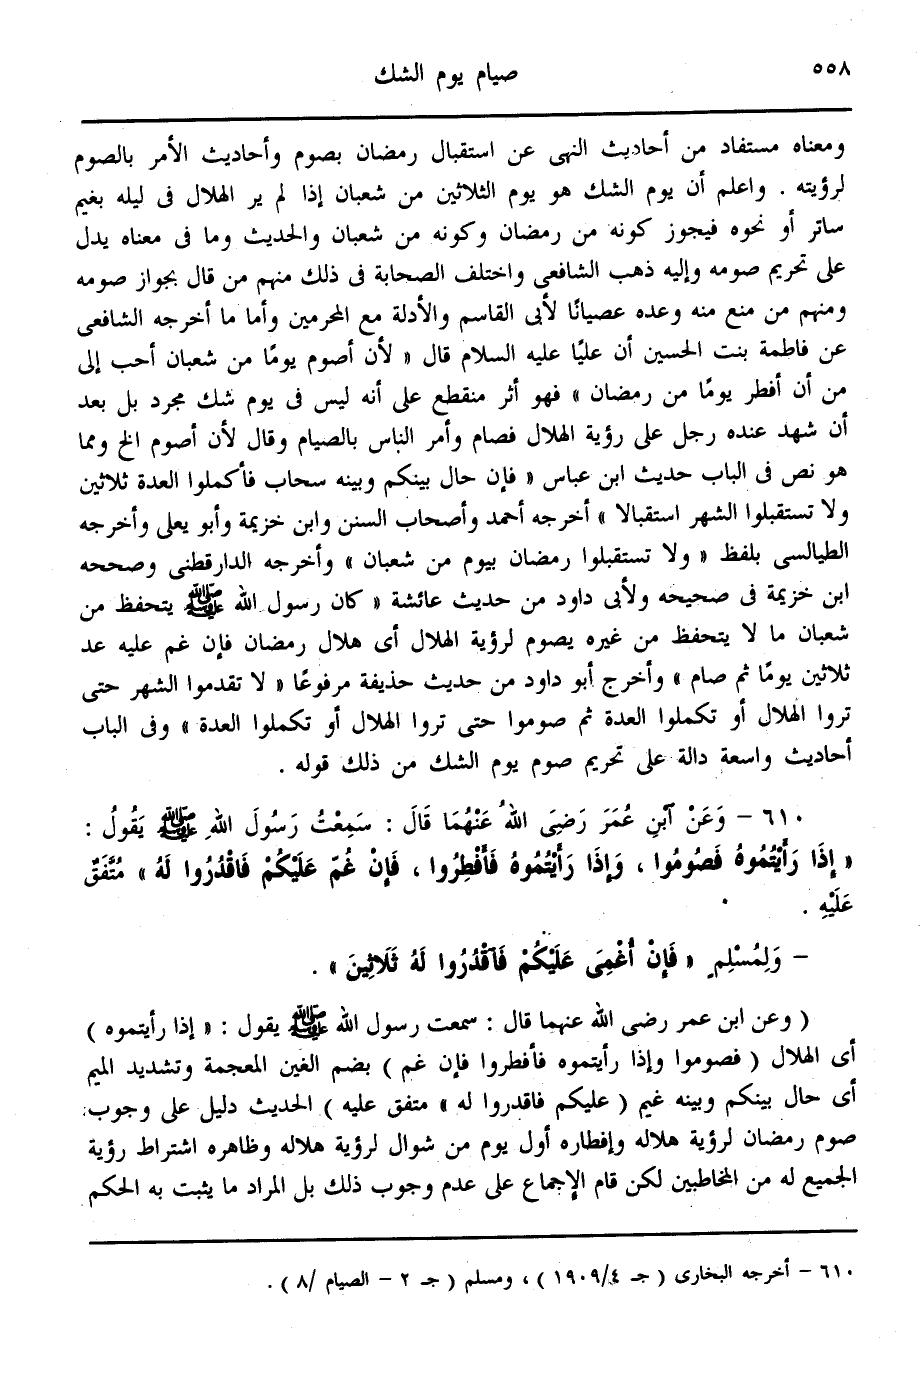 ٥٥٨
صيام يوم الشك
ومعناه مستفاد من أحاديث النهى عن استقبال رمضان بصوم وأحاديث الأمر بالصوم
لرؤيته . واعلم أن يوم الشك هو يوم الثلاثين من شعبان إذا لم ير الهلال فى ليله بغيم
ساتر أو نحوه فيجوز كونه من رمضان وكونه من شعبان والحديث وما فى معناه يدل
على تحريم صومه وإليه ذهب الشافعى واختلف الصحابة فى ذلك منهم من قال بجواز صومه
ومنهم من منع منه وعده عصيانًا لأبى القاسم والأدلة مع المحرمين وأما ما أخرجه الشافعى
عن فاطمة بنت الحسين أن عليًا عليه السلام قال « لأن أصوم يومًا من شعبان أحب إلى
من أن أفطر يومًا من رمضان » فهو أثر منقطع على أنه ليس فى يوم شك مجرد بل بعد
أن شهد عنده رجل على رؤية الهلال فصام وأمر الناس بالصيام وقال لأن أصوم الخ ومما
هو نص فى الباب حديث ابن عباس « فإن حال بينكم وبينه سحاب فأكملوا العدة ثلاثين
ولا تستقبلوا الشهر استقبالا » أخرجه أحمد وأصحاب السنن وابن خزيمة وأبو يعلى وأخرجه
الطيالسى بلفظ « ولا تستقبلوا رمضان بيوم من شعبان » وأخرجه الدارقطنى وصححه
ابن خزيمة فى صحيحه ولأبى داود من حديث عائشة « كان رسول الله ﷺ يتحفظ من
شعبان ما لا يتحفظ من غيره يصوم لرؤية الهلال أى هلال رمضان فإن غم عليه عد
ثلاثين يومًا ثم صام » وأخرج أبو داود من حديث حذيفة مرفوعًا « لا تقدموا الشهر حتى
تروا الهلال أو تكملوا العدة ثم صوموا حتى تروا الهلال أو تكملوا العدة » وفى الباب
أحاديث واسعة دالة على تحريم صوم يوم الشك من ذلك قوله .
٦١٠ - وَعَنْ آبْنِ عُمَرَ رَضِىَ اللهُ عَنْهُمَا قَالَ : سَمِعْتُ رَسُولَ اللهِ ﷺ يَقُولُ :
« إِذَا رَأَيْتُمُوهُ فَصُومُوا ، وَإِذَا رَأَيْتُمُوهُ فَأَفْطِرُوا ، فَإِنْ غُمّ عَلَيْكُمْ فَاقْدُرُوا لَهُ » مُتَّفَقٌ
عَلَيْهِ .
- وَلِمُسْلِمٍ « فَإِنْ أُغْمِىَ عَلَيْكُمْ فَآقْدُرُوا لَهُ ثَلَاثِينَ » .
( وعن ابن عمر رضى الله عنهما قال : سمعت رسول الله ﷺ يقول : « إذا رأيتموه )
أى الهلال ( فصوموا وإذا رأيتموه فأفطروا فإن غم ) بضم الغين المعجمة وتشديد الميم
أى حال بينكم وبينه غيم ( عليكم فاقدروا له » متفق عليه ) الحديث دليل على وجوب
صوم رمضان لرؤية هلاله وإفطاره أول يوم من شوال لرؤية هلاله وظاهره اشتراط رؤية
الجميع له من المخاطبين لكن قام الإجماع على عدم وجوب ذلك بل المراد ما يثبت به الحكم
٦١٠ - أخرجه البخارى ( جـ ١٩٠٩/٤ ) ، ومسلم ( جـ ٢ - الصيام /٨ ) .